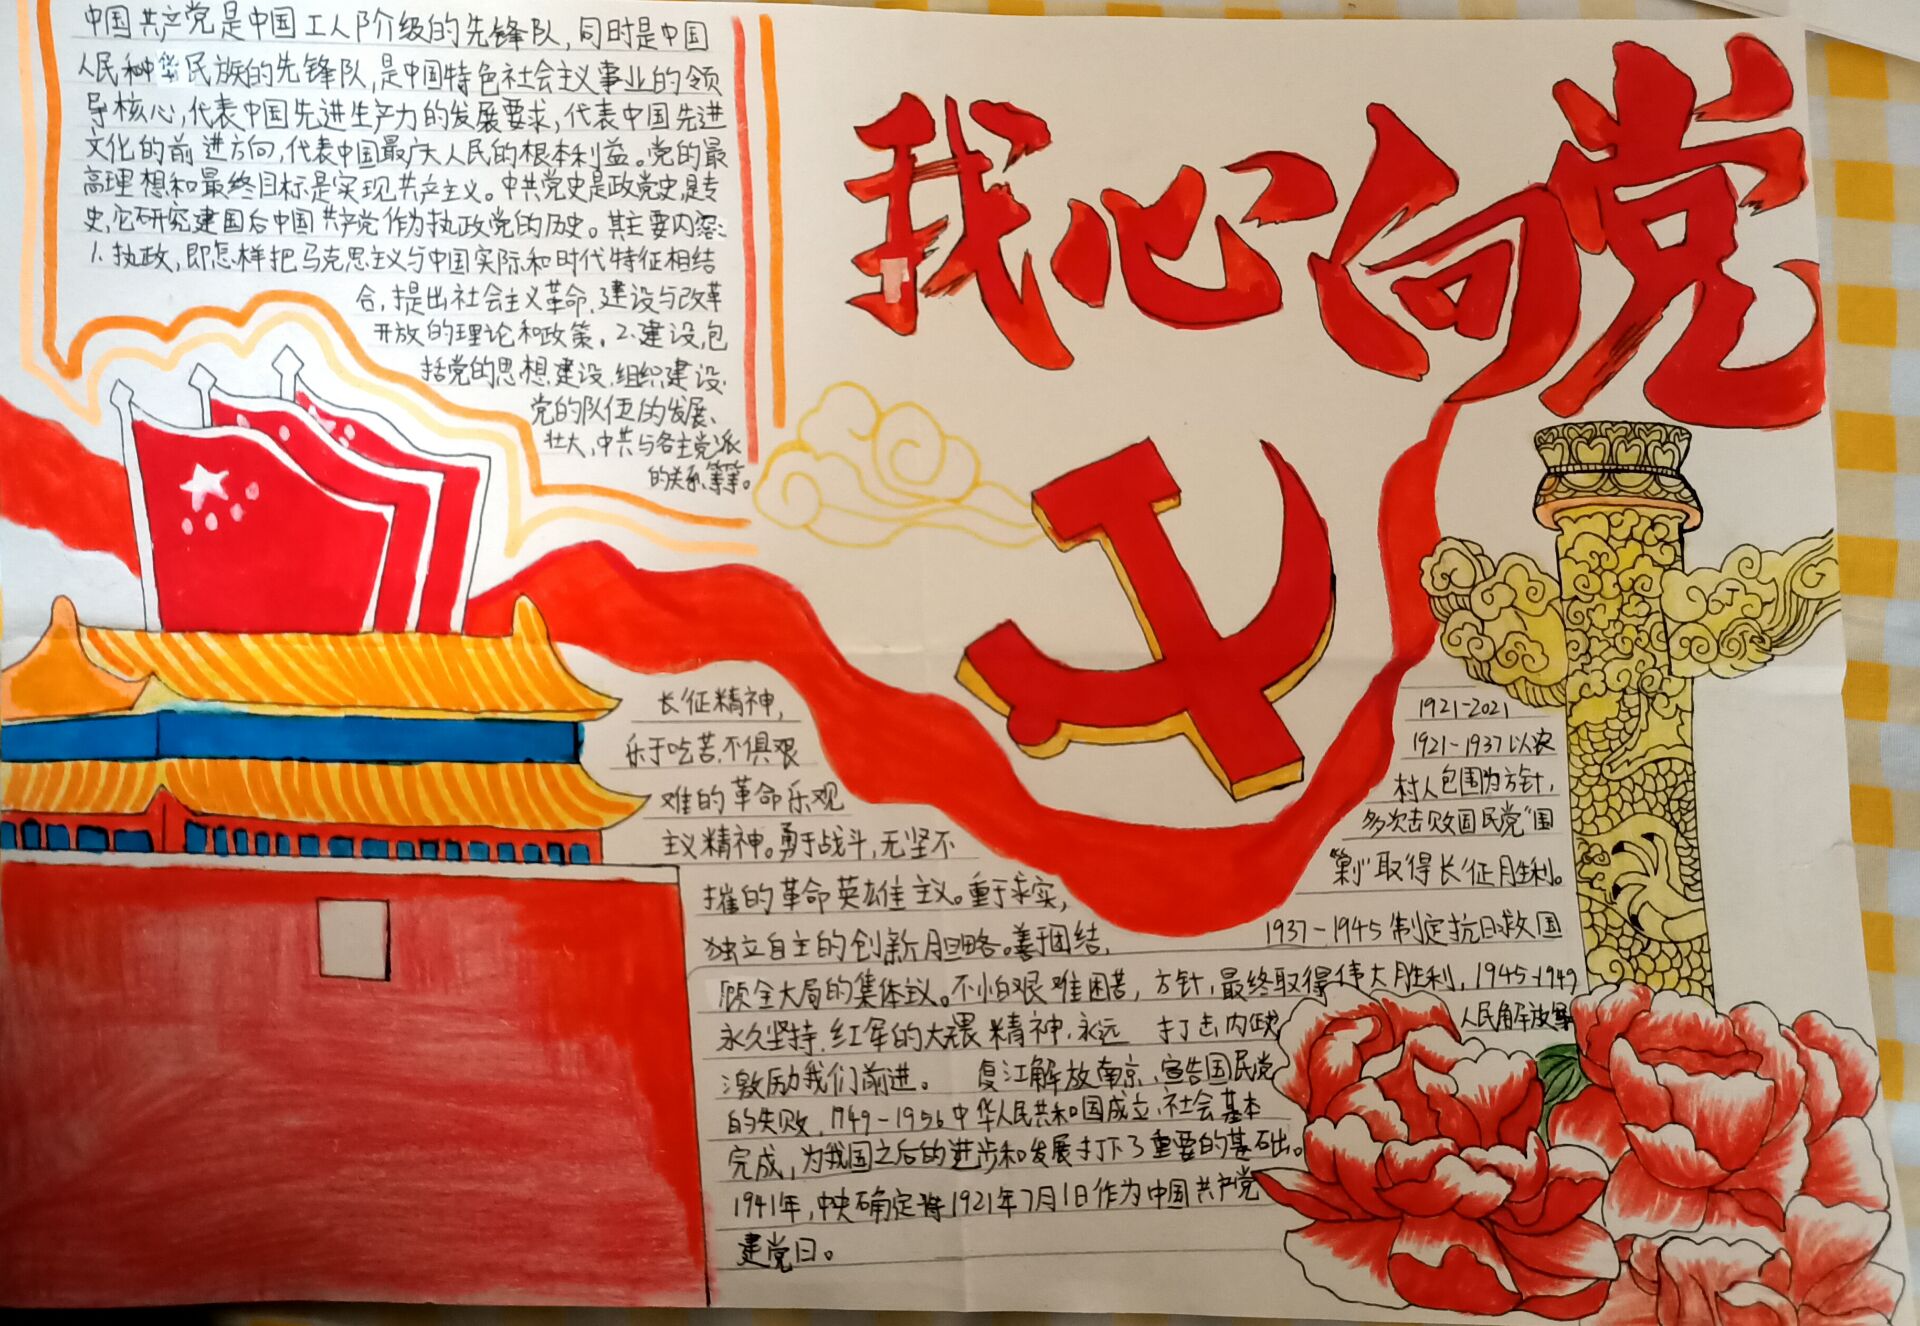 我心向党
中国共产党是中国工人阶级的先锋队,同时是中国
人民和中华民族的先锋队,是中国特色社会主义事业的领
导核心,代表中国先进生产力的发展要求,代表中国先进
文化的前进方向,代表中国最广大人民的根本利益。党的最
高理想和最终目标是实现共产主义。中共党史是政党史,是专
史,它研究建国后中国共产党作为执政党的历史。其主要内容:
1.执政,即怎样把马克思主义与中国实际和时代特征相结
合,提出社会主义革命、建设与改革
开放的理论和政策。2.建设,包
括党的思想建设、组织建设、
党的队伍的发展、
壮大,中共与各主党派
的关系,等等。
长征精神,
乐于吃苦,不惧艰
难的革命乐观
主义精神。勇于战斗,无坚不
摧的革命英雄主义。重于求实,
独立自主的创新胆略。善于团结,
顾全大局的集体主义。不怕艰难困苦,
永久坚持,红军的大无畏精神,永远
激励我们前进。
1921-2021
1921-1937以农
村人包围为方针,
多次击败国民党“国
剿”取得长征胜利。
1937-1945制定抗日救国
方针,最终取得伟大胜利,1945-1949
人民解放军
打击内战
复江解放南京,宣告国民党
的失败,1949-1956中华人民共和国成立,社会基本
完成,为我国之后的进步和发展打下了重要的基础。
1941年,中央确定将1921年7月1日作为中国共产党
建党日。